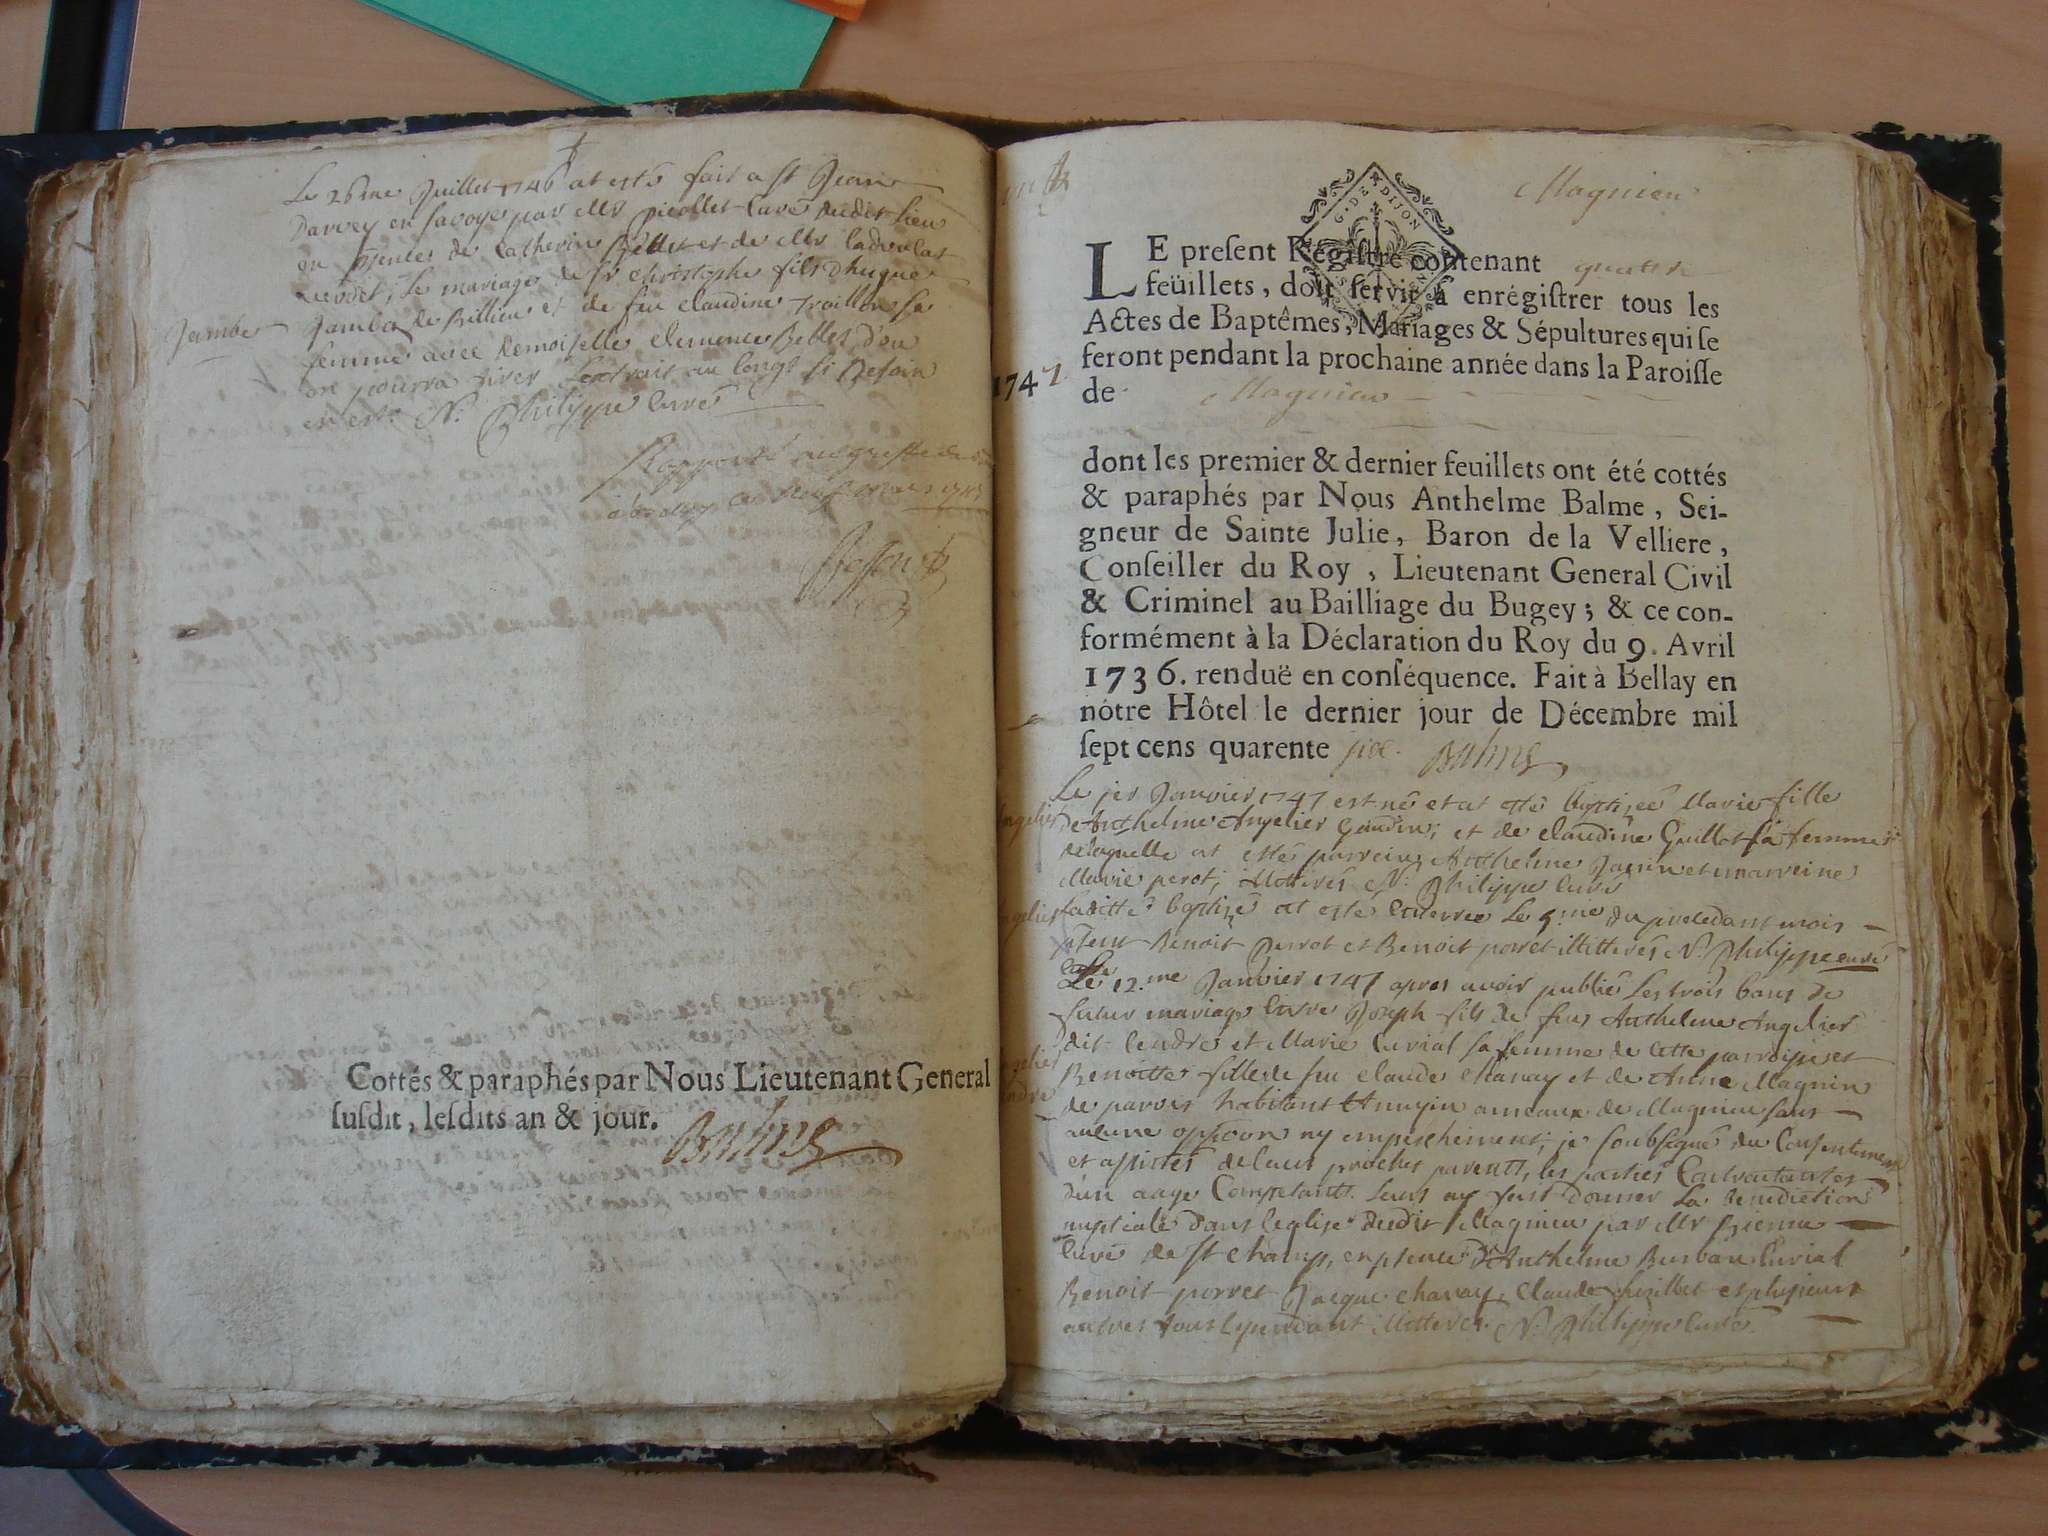 Le 26me Juillet 1746 at esté fait a St Jean
Darvey en Savoye par Mr picollet Curé dudit lieu
en psence de Catherin Bellet et de Mr
le mariage de Sr Christophe fils d'hugue
Jambe
Jambe de Billieu et de feu Claudine sa
femme avec Demoiselle Clemence Bellet, d'ou
on pourra tirer l'extrait au long si Besoin
en est. N. Philippe Curé
Rapporté au greffe de
Cottés & paraphés par Nous Lieutenant General
susdit, lesdits an & jour.
Balme
Magnieu
G. DE DIJON
LE present Registre contenant quattre
feüillets, doit servir à enrégistrer tous les
Actes de Baptêmes, Mariages & Sépultures qui se
feront pendant la prochaine année dans la Paroisse
1747
de Magnieu
dont les premier & dernier feuillets ont été cottés
& paraphés par Nous Anthelme Balme, Sei-
gneur de Sainte Julie, Baron de la Velliere,
Conseiller du Roy, Lieutenant General Civil
& Criminel au Bailliage du Bugey; & ce con-
formément à la Déclaration du Roy du 9. Avril
1736. renduë en conséquence. Fait à Bellay en
nôtre Hôtel le dernier jour de Décembre mil
sept cens quarente six. Balme
Le 1er Janvier 1747 est né et at esté baptizée Marie fille
Angelier
de Anthelme Angelier Gaudin, et de Claudine Guillot sa femme
delaquelle at esté parrein Anthelme et marreine
Marie perot, illitterés N. Philippe Curé
Angelier
laditte baptizé at esté Enterrée le 5me du precedant mois
psent Benoit perrot et Benoit porret illitterés N. Philippe curé
Le 12.me Janvier 1747 apres avoir publié les trois bans de
futur mariage Entre Joseph fils de feus Anthelme Angelier
dit Cendre et Marie Curial sa femme de cette parroisse et
Benoitte fille de feu Claude Chanay et de Anne Magnin
de parves habitant ameaux de Magnieu sans
aucune oppoon ny empeschement, je soubsigné du Consentement
et assistés de leurs proches parents, les parties Contractantes
d'un aage Competant. leurs ay fait donner la Benediction
nuptiale dans l'eglise dudit Magnieu par Mr
Curé de St Champ, en psence d'Anthelme Curial
Benoit porret Jacque Chanay, Claude et plusieurs
autres tous Cependant illitterés. N. Philippe Curé.